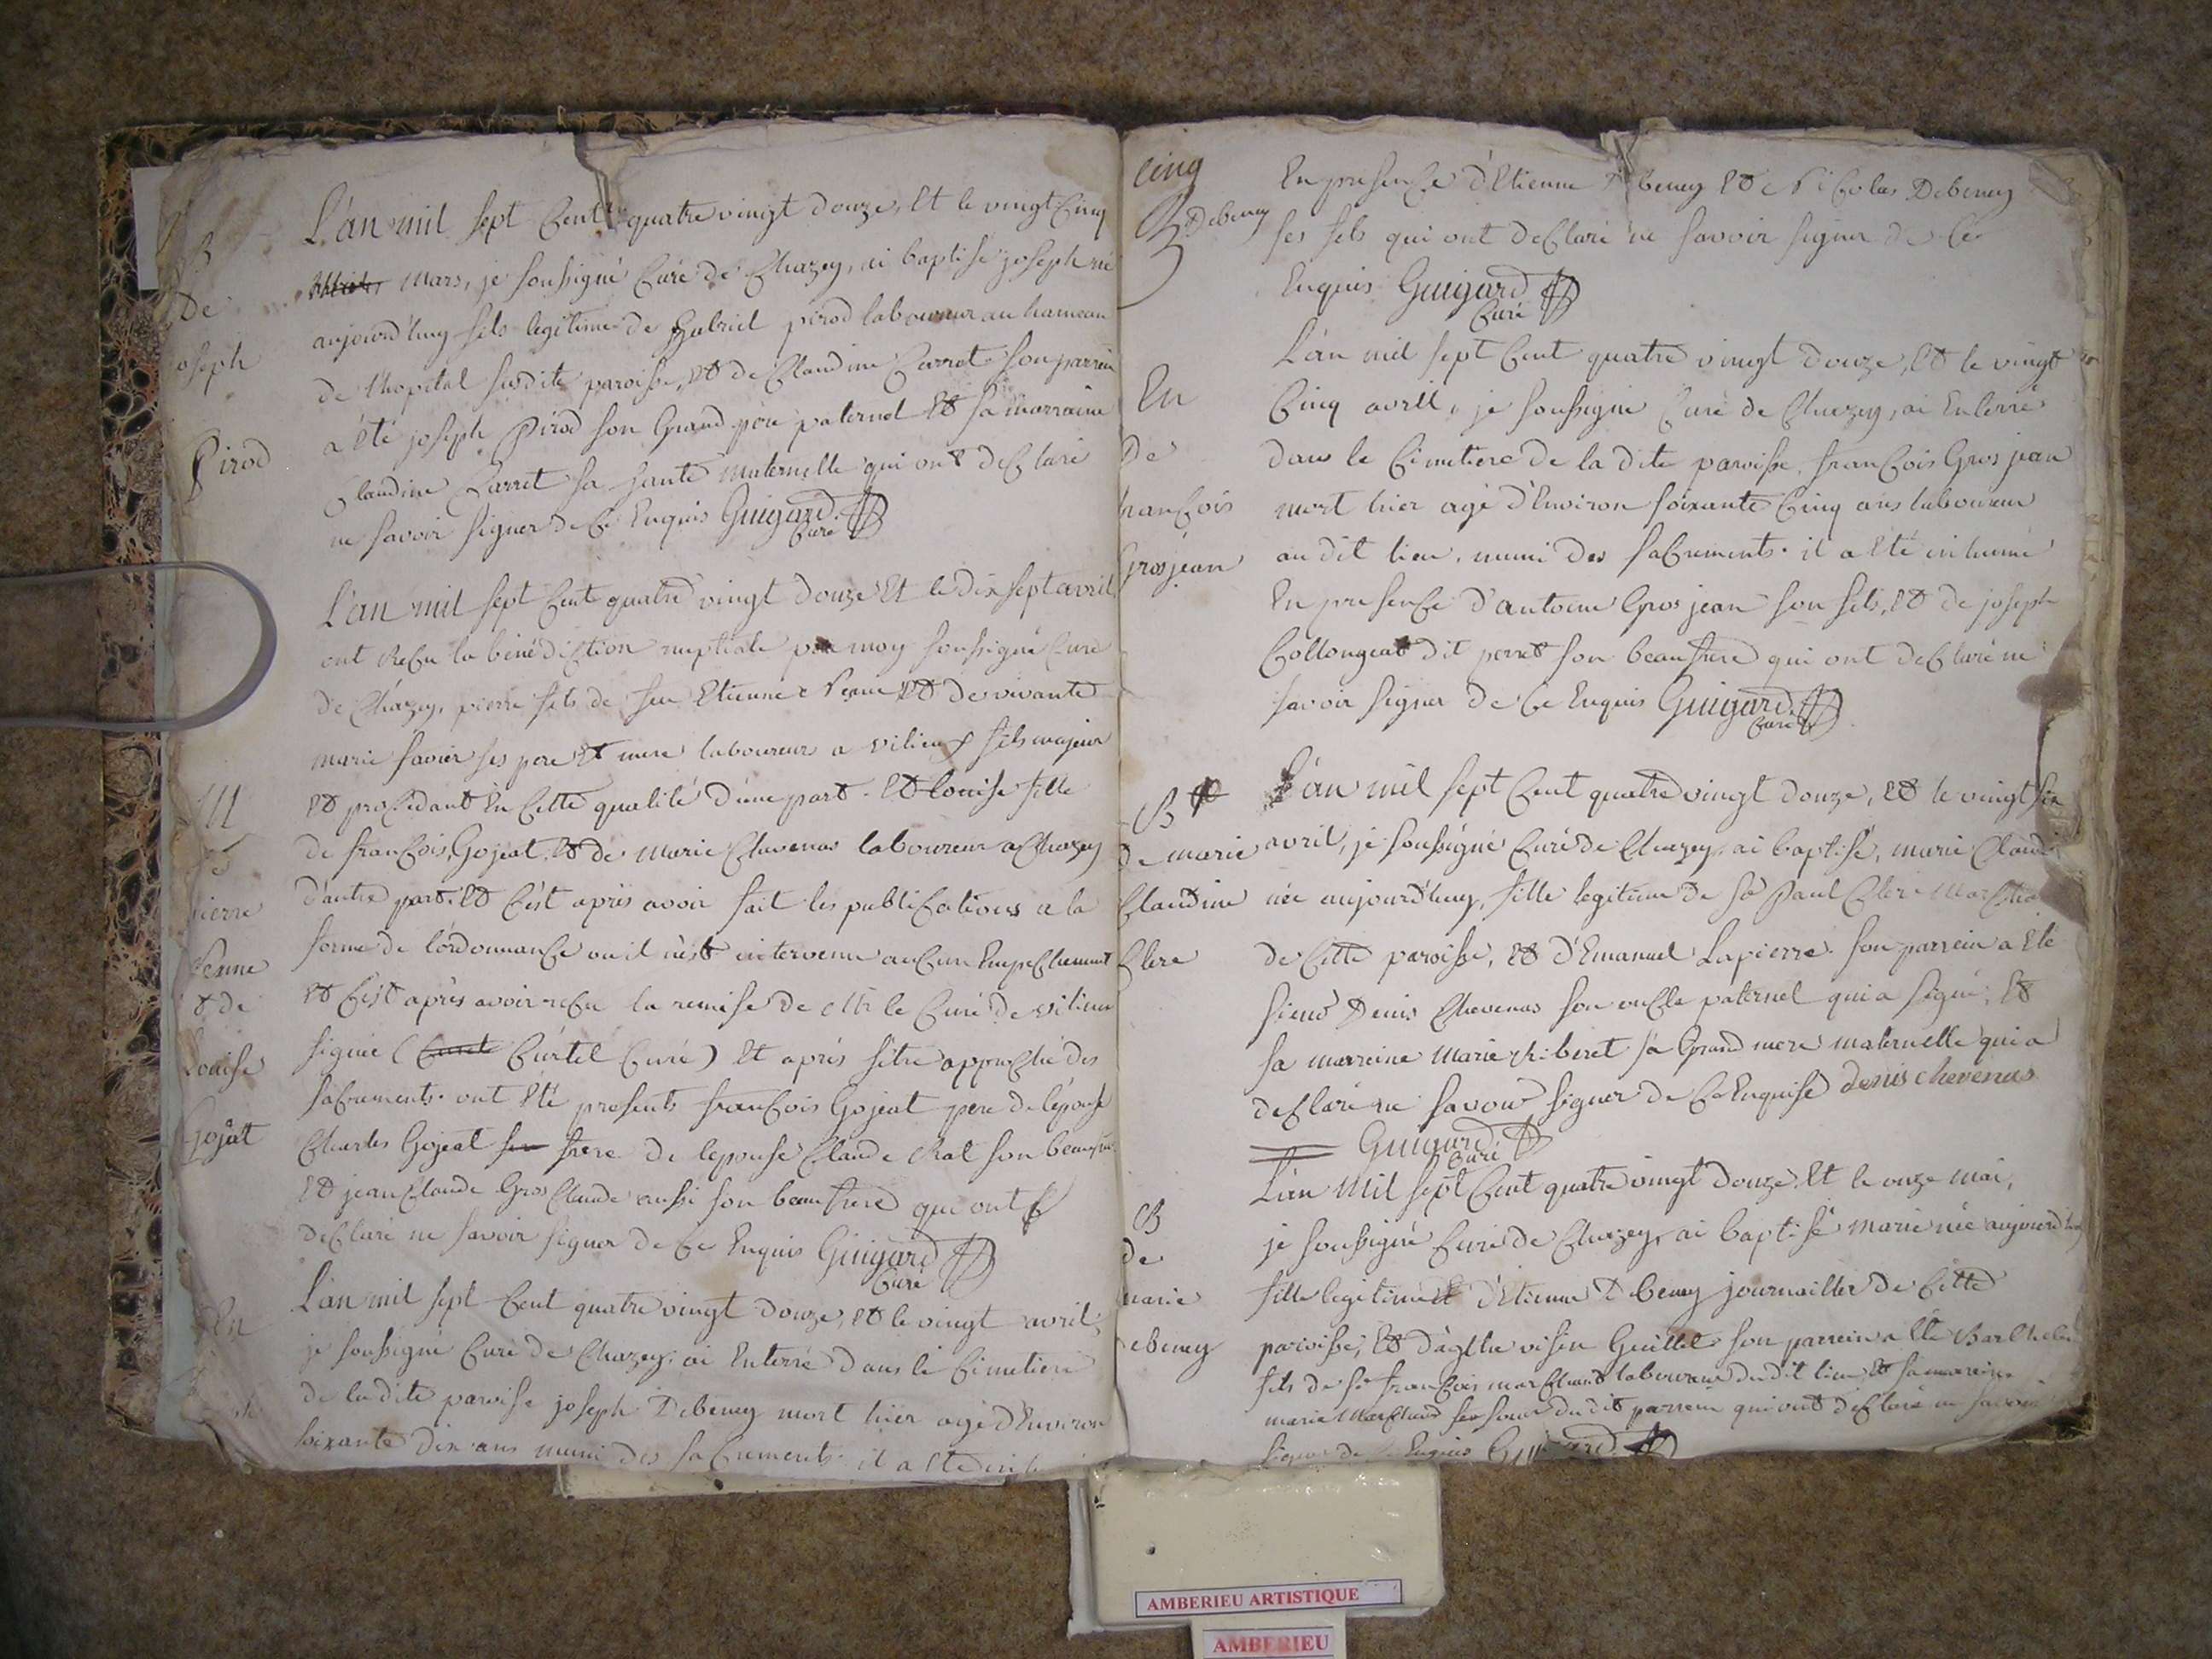 B
De
joseph
Pirod
L'an mil sept Cent quatre vingt douze, Et le vingt Cinq
mars, je soussigné Curé de Chazey, ai baptisé joseph né
aujourd'huy fils legitime de Gabriel pirod laboureur au hameau
de l'hopital susdite paroisse, Et de Claudine Carret son parrein
a été joseph Pirod son Grand pére paternel Et sa marraine
Claudine Carret sa tante maternelle qui ont declaré
ne savoir signer de Ce Enquis Guigard
Curé
M
pierre
Penne
et de
Louise
Gojat
L'an mil sept Cent quatre vingt douze Et le dix sept avril
ont reçu la bénédiction nuptiale par moy soussigné Curé
de Chazey, pierre fils de feu Etienne Penne Et de vivante
marie favier ses pere Et mere laboureur a vilieux fils majeur
Et procédant En Cette qualité d'une part. Et Louise fille
de françois Gojeat, Et de marie Chavenas laboureur a Chazey
d'autre part. Et C'est aprés avoir fait les publications a la
forme de l'ordonnance ou il n'est intervenu aucun Empechement
Et C'est aprés avoir reçu la remise de Mr le Curé de vilieux
signée (Curtel Curé) Et aprés s'être approché des
sacrements. ont été presents françois Gojeat pere de l'épouse
Charles Gojeat frere de l'epouse Claude Rat son beaufrere
Et jean Claude Gros Claude aussi son beau frere qui ont
declaré ne savoir signer de Ce Enquis Guigard
Curé
En
L'an mil sept Cent quatre vingt douze, Et le vingt avril,
je soussigné Curé de Chazey, ai Enterré dans le Cimetiere
de la dite paroisse joseph Debeney mort hier agé d'Environ
soixante dix ans muni des sacrements. il a été
cinq
Debeney
En presence d'Etienne Debeney Et Nicolas Debeney
ses fils qui ont declaré ne savoir signer de Ce
Enquis Guigard
Curé
En
De
françois
Grosjean
L'an mil sept Cent quatre vingt douze, Et le vingt
Cinq avril, je soussigné Curé de Chazey, ai Enterré
dans le Cimetiere de la dite paroisse, françois Gros jean
mort hier agé d'Environ soixante Cinq ans laboureur
au dit lieu, muni des sacrements. il a été inhumé
En presence d'antoine Gros jean son fils, Et de joseph
Collongeat dit perret son beau frere qui ont declaré ne
savoir signer de Ce Enquis Guigard
Curé
B
de marie
Claudine
Clere
L'an mil sept Cent quatre vingt douze, Et le vingt six
avril, je soussigné Curé de Chazey, ai baptisé, marie Claudi
née aujourd'huy, fille legitime de sr Paul Clere
de Cette paroisse, Et d'Emanuel Lapierre. son parrein a été
sieur Denis Chevenas son oncle paternel qui a signé, Et
sa marreine Marie sa Grand mere maternelle qui a
declaré ne savoir signer de Ce Enquise denis chevenas
Guigard
Curé
B
de
marie
Debeney
L'an Mil sept Cent quatre vingt douze, Et le onze mai,
je soussigné Curé de Chazey, ai baptisé marie née aujourd'huy
fille legitime d'Etienne Debeney journailler de Cette
paroisse, Et d'agthe Guillet son parrein a été
fils de sr françois marchand laboureur du dit lieu Et sa marreine
marie marchand soeur du dit parrein qui ont declaré ne savoir
signer de Ce Enquis Guigard
AMBERIEU ARTISTIQUE
AMBERIEU